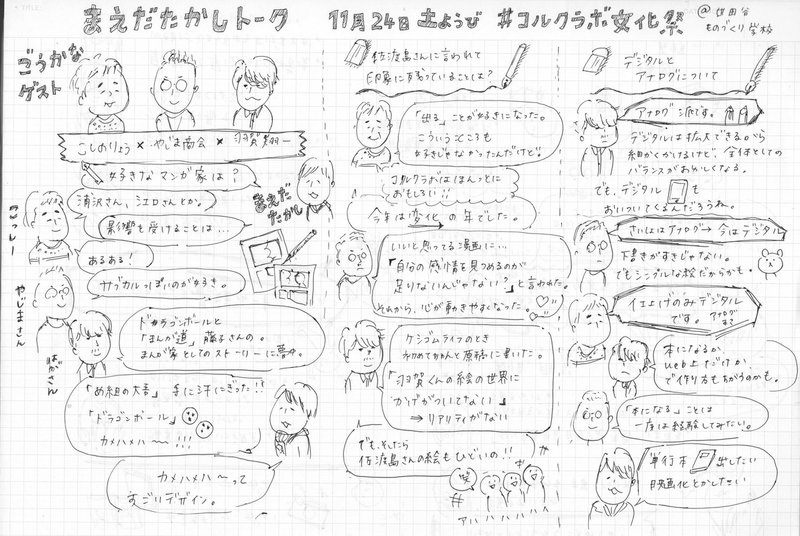 まえだたかしトーク 11月24日 土ようび #コルクラボ文化祭
@世田谷
ものづくり学校
ごうかな
ゲスト
こしのりょう × やじま商会 × 羽賀翔一
好きなマンガ家は?
まえだ
たかし
浦沢さん、江口さんとか。
こっしー
影響を受けることは…
あるある!
サブカルっぽいのが好き。
やじまさん
はがさん
ドラゴンボールと
「まんが道」藤子さんの。
まんが家としてのストーリーに夢中。
「め組の大吾」手に汗にぎった!!
「ドラゴンボール」
カメハメハ〜!!!
カメハメハ〜って
すごいデザイン。
佐渡島さんに言われて
印象に残っていることは?
「出る」ことが好きになった。
こういうところも
好きじゃなかったんだけど。
コルクラボはほんっとに
おもしろい!!
今年は変化の年でした。
いいと思ってる漫画に…
「自分の感情を見つめるのが
足りないんじゃない?」と言われた。
それから、心が動きやすくなった。
ケシゴムライフのとき
初めてちゃんと原稿に書いた。
「羽賀くんの絵の世界に
かげがついてない」
→リアリティがない
でも、そしたら
佐渡島さんの絵もひどいの!!
(笑)
アハハハハハ
デジタルと
アナログについて
アナログ派です。
デジタルは拡大できるから
細かくかけるけど、全体としての
バランスがおかしくなる。
でも、デジタル
もおいついてくるんだろうね。
さいしょはアナログ→今はデジタル
下書きがすきじゃない。
でもシンプルな絵だからかも。
仕上げのみデジタル
です。
本になるか
web上だけか
で作り方もちがうのかも。
「本になる」ことは
一度は経験してみたい。
単行本 出したい
映画化とかしたい